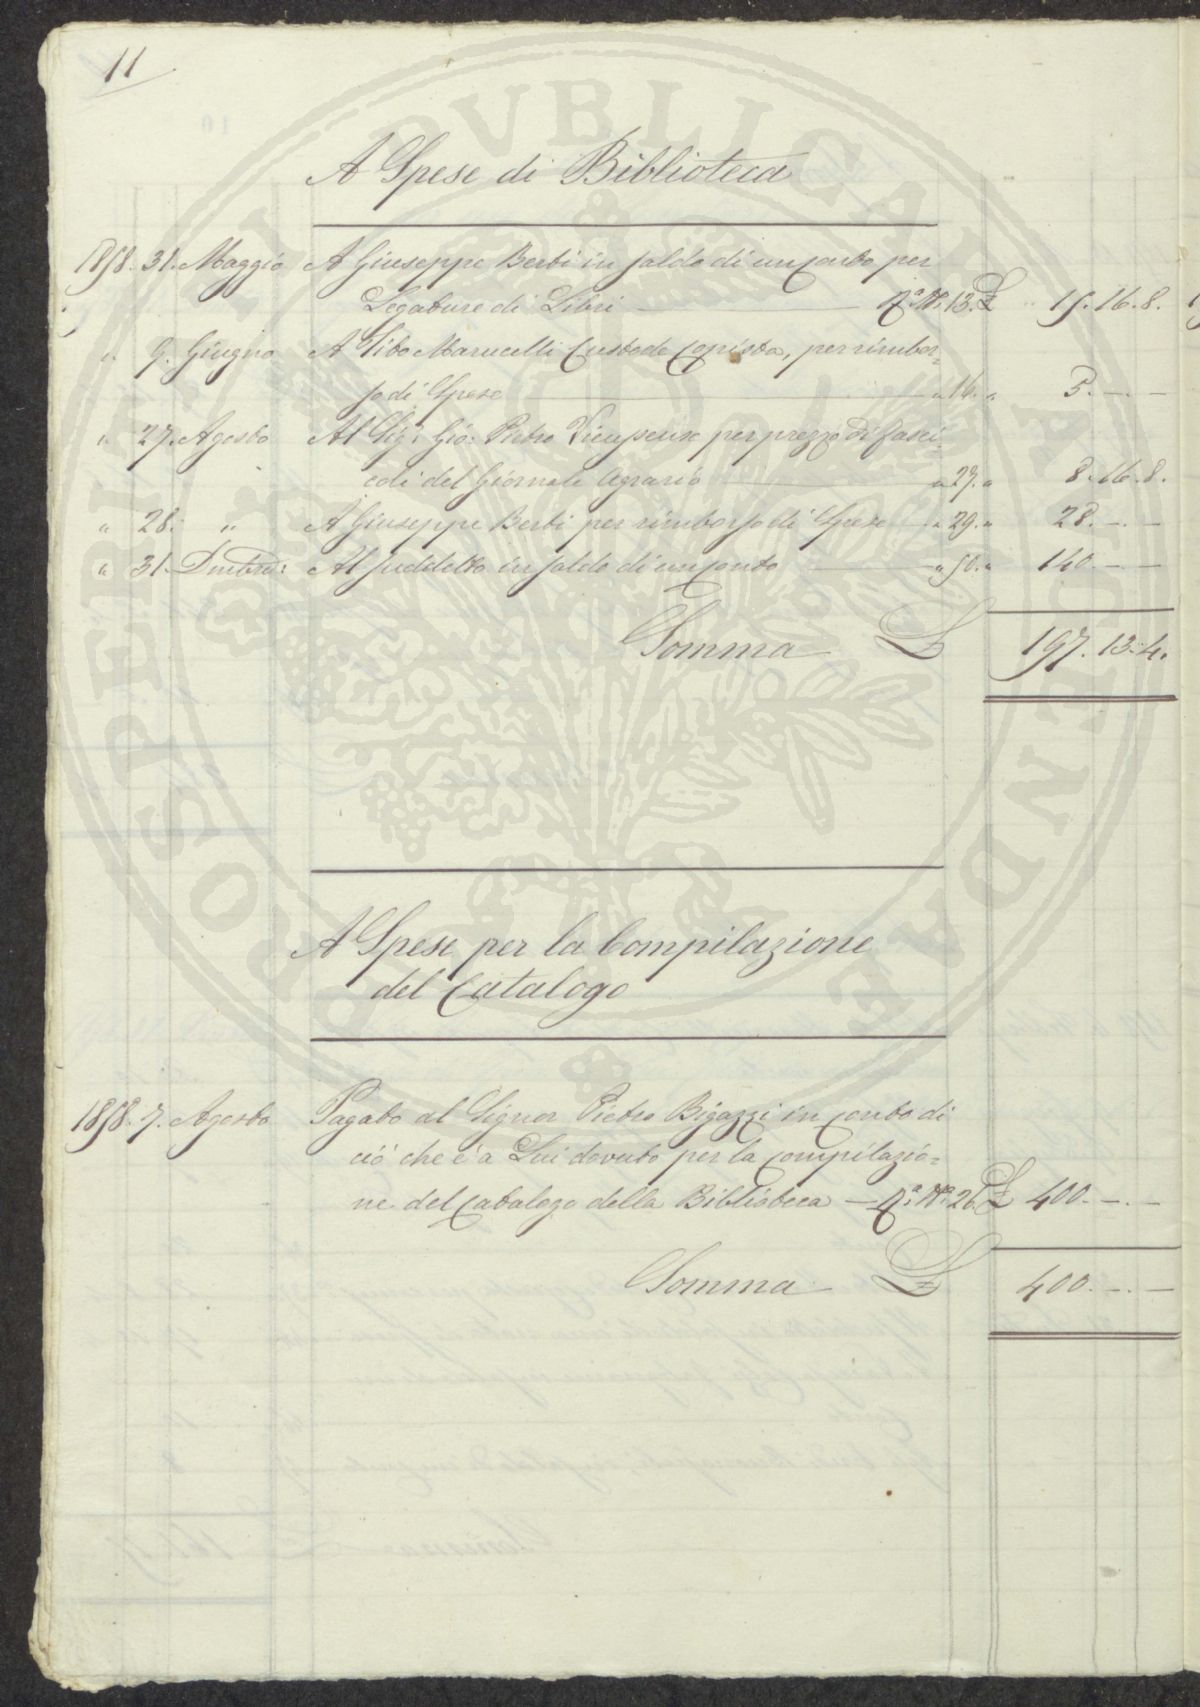 11
A Spese di Biblioteca
1858. 31. Maggio A Giuseppe Berti in saldo di un conto per
Legature di Libri — Qa. No. 13. £ 15. 16. 8.
" 9. Giugno A Tito Marucelli Custode Copista, per rimbor=
so di Spese — " 16. " 5. — . —
" 27. Agosto Al Sig: Gio: Pietro Vieusseux per prezzo di fasci=
coli del Giornale Agrario — " 27. " 8. 16. 8.
" 28. " A Giuseppe Berti per rimborso di Spese — " 29. " 28. — . —
" 31. Al suddetto in saldo di un conto — " 50. " 140. — . —
Somma £ 197. 13. 4.
A Spese per la Compilazione
del Catalogo
1858. 7. Agosto Pagato al Signor Pietro Bigazzi in conto di
ciò che è a Lui dovuto per la compilazio=
ne del Catalogo della Biblioteca — Qa. No. 26. £ 400. — . —
Somma £ 400. — . —
PROSPERITATI PVBLICAE AVGENDAE